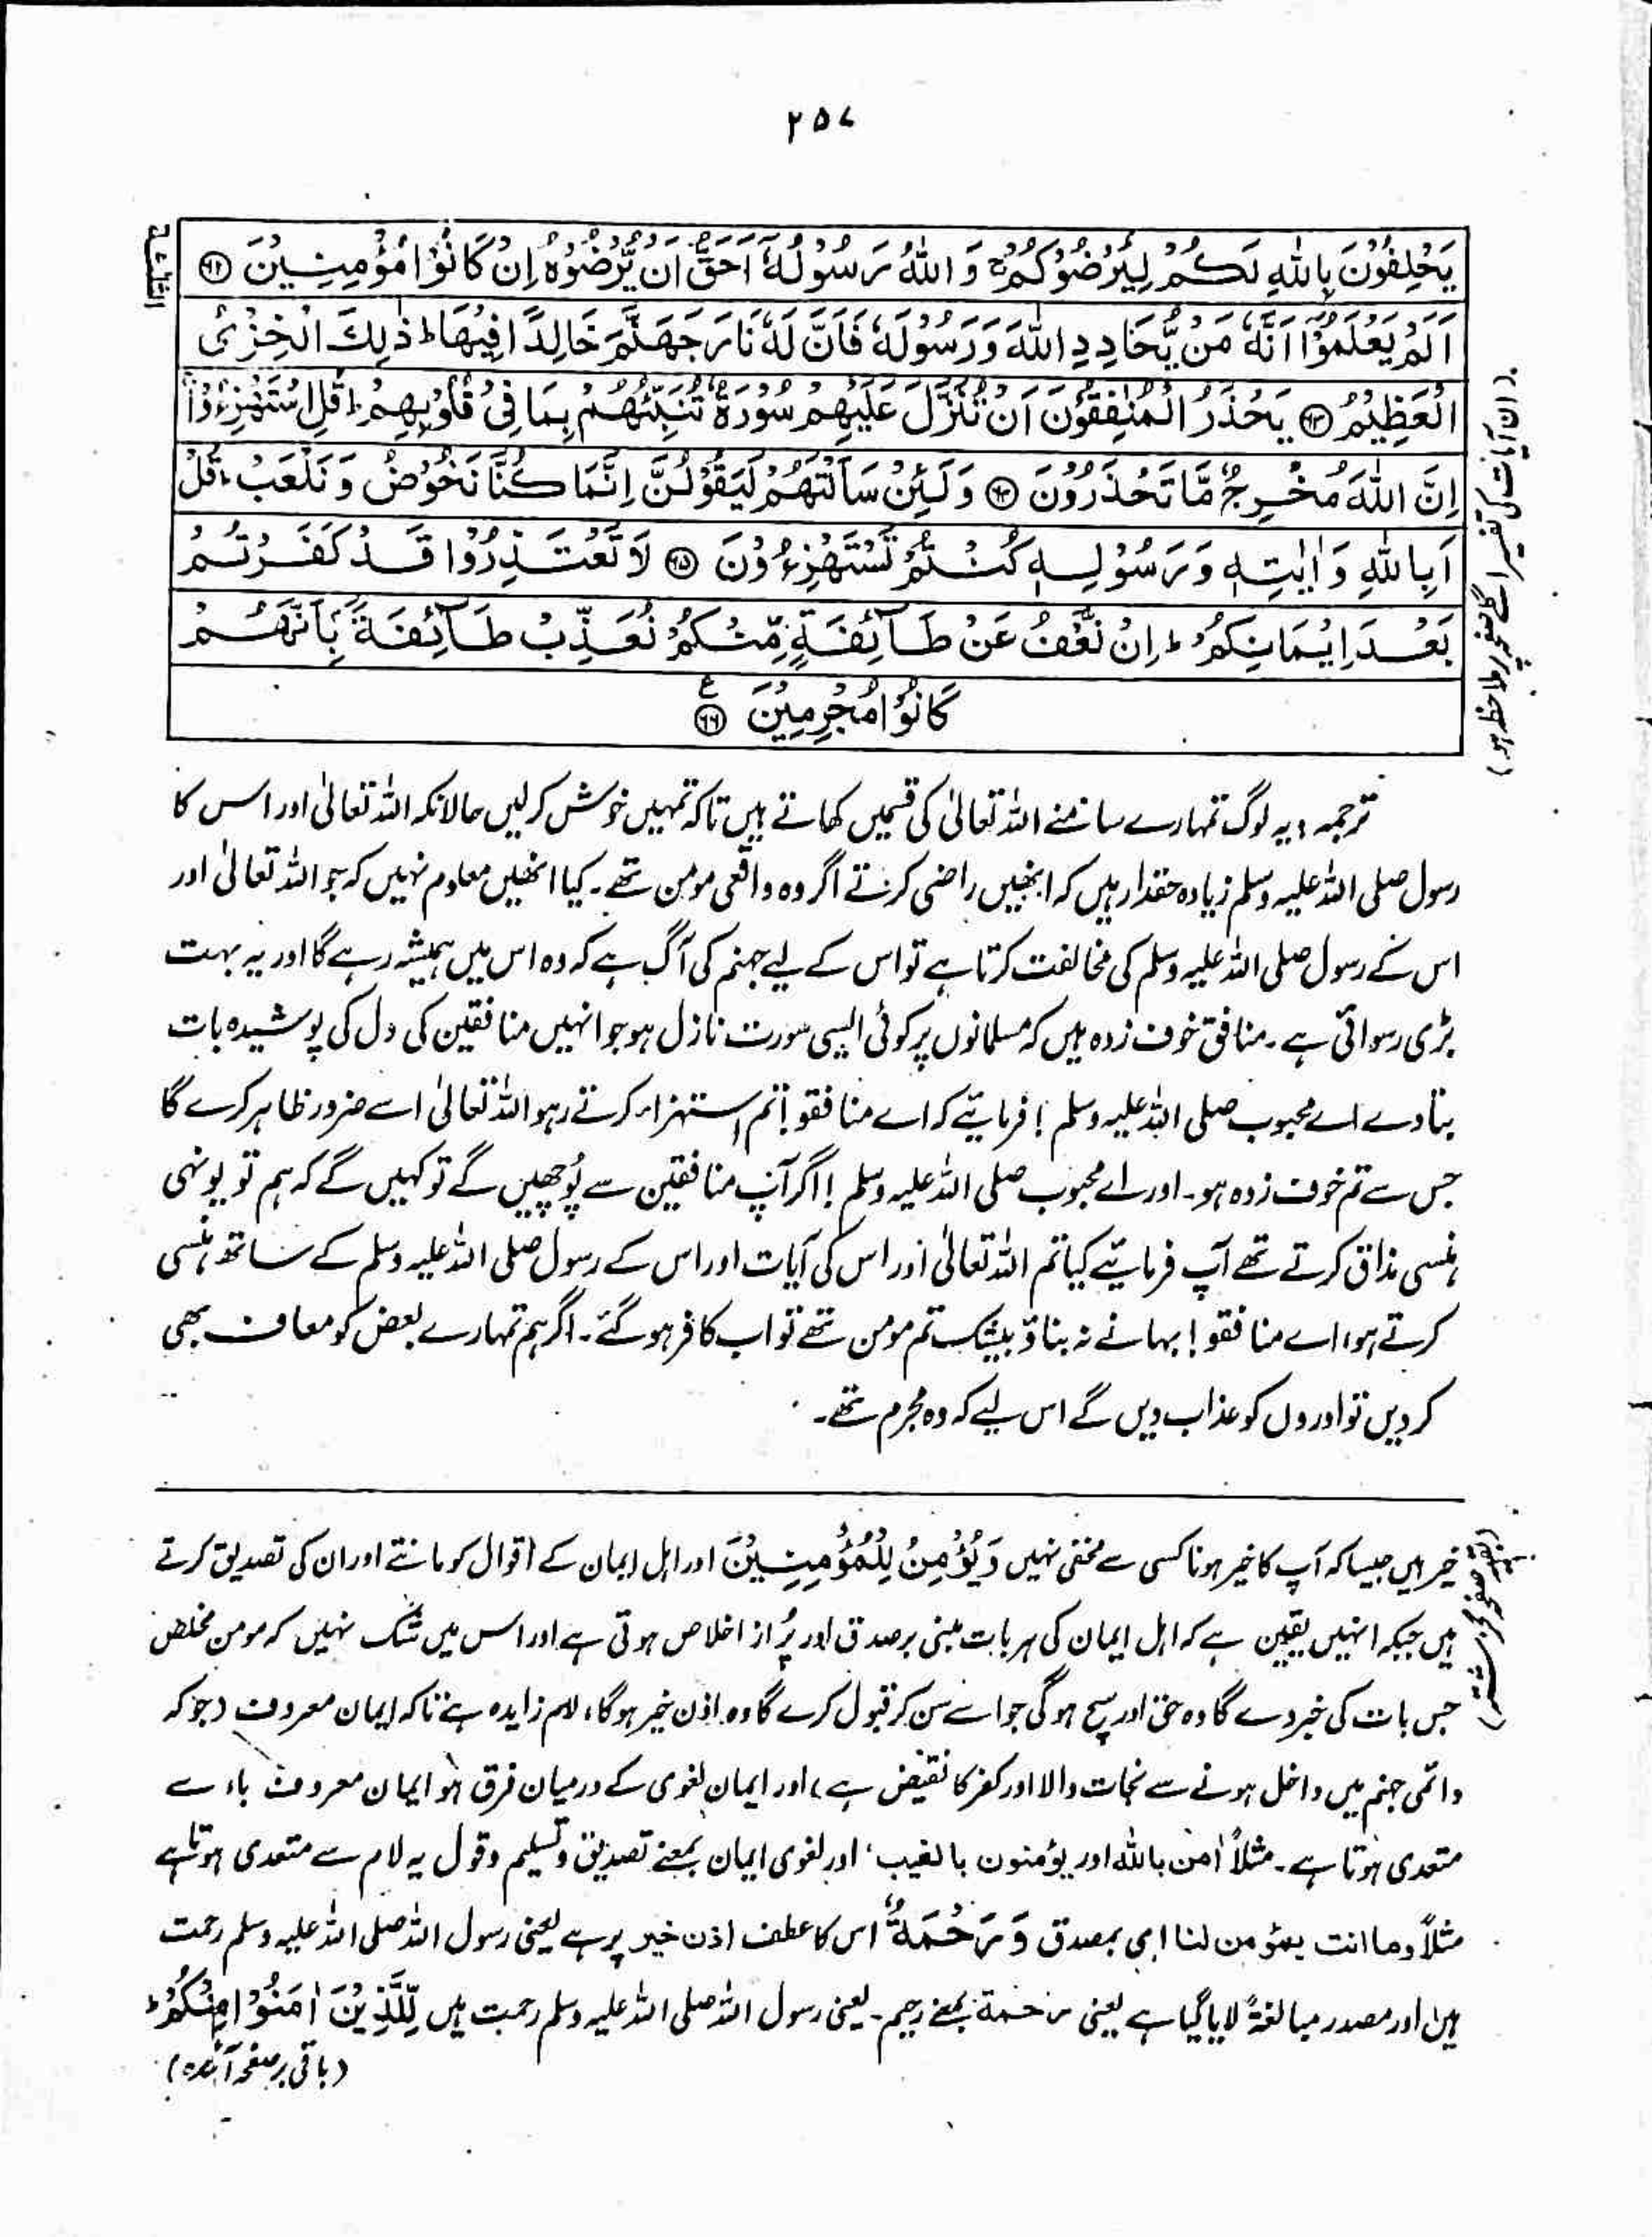 ۲۵۷
يَحْلِفُوْنَ بِاللّٰهِ لَكُمْ لِيُرْضُوْكُمْ ج وَ اللّٰهُ رَسُوْلُهٗٓ اَحَقُّ اَنْ يُّرْضُوْهُ اِنْ كَانُوْا مُؤْمِنِيْنَ ﴿۶۲﴾
اَلَمْ يَعْلَمُوْٓا اَنَّهٗ مَنْ يُّحَادِدِ اللّٰهَ وَرَسُوْلَهٗ فَاَنَّ لَهٗ نَارَ جَهَنَّمَ خَالِدًا فِيْهَا ط ذٰلِكَ الْخِزْىُ
الْعَظِيْمُ ﴿۶۳﴾ يَحْذَرُ الْمُنٰفِقُوْنَ اَنْ تُنَزَّلَ عَلَيْهِمْ سُوْرَةٌ تُنَبِّئُهُمْ بِمَا فِيْ قُلُوْبِهِمْ ط قُلِ اسْتَهْزِءُوْا ج
اِنَّ اللّٰهَ مُخْرِجٌ مَّا تَحْذَرُوْنَ ﴿۶۴﴾ وَ لَئِنْ سَاَلْتَهُمْ لَيَقُوْلُنَّ اِنَّمَا كُنَّا نَخُوْضُ وَ نَلْعَبُ ط قُلْ
اَبِاللّٰهِ وَ اٰيٰتِهٖ وَ رَسُوْلِهٖ كُنْتُمْ تَسْتَهْزِءُوْنَ ﴿۶۵﴾ لَا تَعْتَذِرُوْا قَدْ كَفَرْتُمْ
بَعْدَ اِيْمَانِكُمْ ط اِنْ نَّعْفُ عَنْ طَآئِفَةٍ مِّنْكُمْ نُعَذِّبْ طَآئِفَةً بِاَنَّهُمْ
كَانُوْا مُجْرِمِيْنَ ع ﴿۶۶﴾
(ان آیات کی تفسیر اگلے صفحہ پر ملاحظہ ہو)
ترجمہ : یہ لوگ تمہارے سامنے اللہ تعالیٰ کی قسمیں کھاتے ہیں تاکہ تمہیں خوش کرلیں حالانکہ اللہ تعالیٰ اور اس کا
رسول صلی اللہ علیہ وسلم زیادہ حقدار ہیں کہ انہیں راضی کرتے اگر وہ واقعی مومن تھے۔ کیا انھیں معلوم نہیں کہ جو اللہ تعالیٰ اور
اس کے رسول صلی اللہ علیہ وسلم کی مخالفت کرتا ہے تو اس کے لیے جہنم کی آگ ہے کہ وہ اس میں ہمیشہ رہے گا اور یہ بہت
بڑی رسوائی ہے۔ منافق خوف زدہ ہیں کہ مسلمانوں پر کوئی ایسی سورت نازل ہو جو انہیں منافقین کی دل کی پوشیدہ بات
بتادے اے محبوب صلی اللہ علیہ وسلم ! فرمائیے کہ اے منافقو! تم استہزاء کرتے رہو اللہ تعالیٰ اسے ضرور ظاہر کرے گا
جس سے تم خوف زدہ ہو۔ اور اے محبوب صلی اللہ علیہ وسلم ! اگر آپ منافقین سے پُوچھیں گے تو کہیں گے کہ ہم تو یونہی
ہنسی مذاق کرتے تھے آپ فرمائیے کیا تم اللہ تعالیٰ اور اس کی آیات اور اس کے رسول صلی اللہ علیہ وسلم کے ساتھ ہنسی
کرتے ہو، اے منافقو! بہانے نہ بناؤ بیشک تم مومن تھے تو اب کافر ہوگئے۔ اگر ہم تمہارے بعض کو معاف بھی
کردیں تو اوروں کو عذاب دیں گے اس لیے کہ وہ مجرم تھے۔
(بقیہ صفحہ گزشتہ)
خیر ہیں جیسا کہ آپ کا خیر ہونا کسی سے مخفی نہیں وَ يُؤْمِنُ لِلْمُؤْمِنِيْنَ اور اہل ایمان کے اقوال کو مانتے اور ان کی تصدیق کرتے
ہیں جبکہ انہیں یقین ہے کہ اہل ایمان کی ہر بات مبنی برصدق اور پُر از اخلاص ہوتی ہے اور اس میں شک نہیں کہ مومن مخلص
جس بات کی خبر دے گا وہ حق اور سچ ہوگی جو اسے سن کر قبول کرے گا وہ اذن خیر ہوگا، لام زایدہ ہے تاکہ ایمان معروف (جو کہ
دائمی جہنم میں داخل ہونے سے نجات والا اور کفر کا نقیض ہے) اور ایمان لغوی کے درمیان فرق ہو ایمان معروف باء سے
متعدی ہوتا ہے۔ مثلاً اٰمن باللہ اور یؤمنون بالغیب، اور لغوی ایمان بمعنے تصدیق وتسلیم وقول یہ لام سے متعدی ہوتا ہے
مثلاً وما انت بمؤمن لنا ای بمصدق وَ رَحْمَةٌ اس کا عطف اذن خیر پر ہے یعنی رسول اللہ صلی اللہ علیہ وسلم رحمت
ہیں اور مصدر مبالغۃً لایا گیا ہے یعنی رحمۃ بمعنے رحیم۔ یعنی رسول اللہ صلی اللہ علیہ وسلم رحمت ہیں لِّلَّذِيْنَ اٰمَنُوْا مِنْكُمْ ط
(باقی برصفحہ آئندہ)